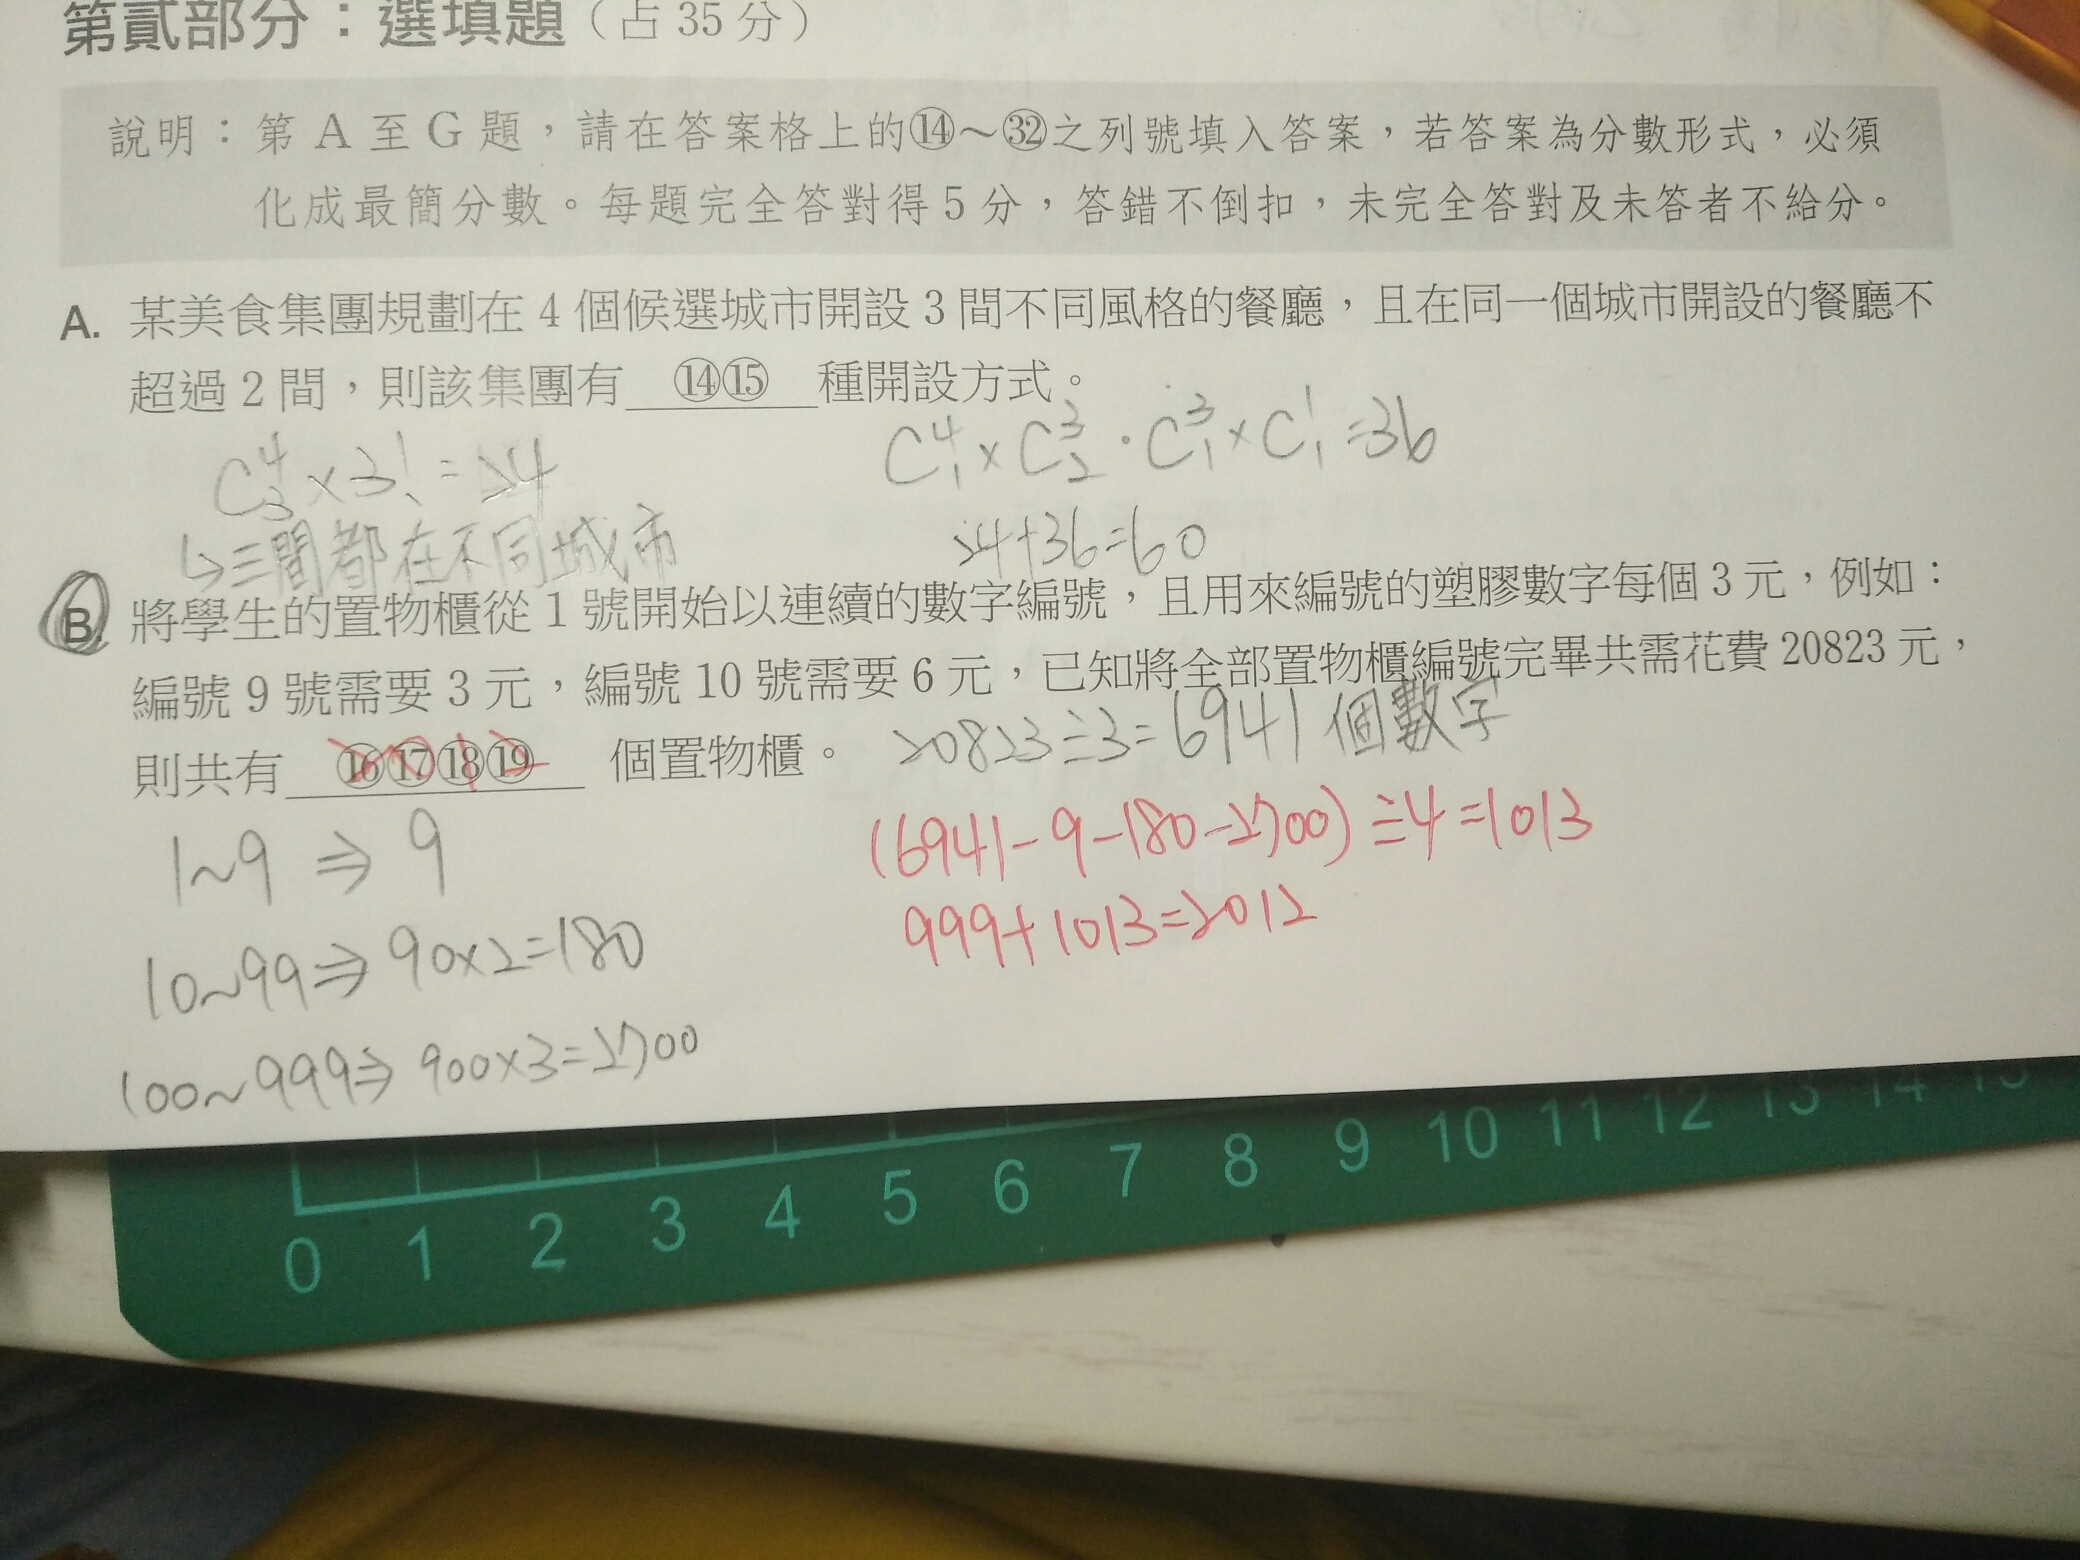 第貳部分：選填題（占 35 分）
說明：第 A 至 G 題，請在答案格上的⑭～㉜之列號填入答案，若答案為分數形式，必須
化成最簡分數。每題完全答對得 5 分，答錯不倒扣，未完全答對及未答者不給分。
A. 某美食集團規劃在 4 個候選城市開設 3 間不同風格的餐廳，且在同一個城市開設的餐廳不
超過 2 間，則該集團有 ⑭⑮ 種開設方式。
C⁴₃×3!=24
↳三間都在不同城市
C⁴₁×C³₂·C³₁×C¹₁=36
24+36=60
B. 將學生的置物櫃從 1 號開始以連續的數字編號，且用來編號的塑膠數字每個 3 元，例如：
編號 9 號需要 3 元，編號 10 號需要 6 元，已知將全部置物櫃編號完畢共需花費 20823 元，
則共有 ⑯⑰⑱⑲ 個置物櫃。
2012
20823÷3=6941個數字
1~9⇒9
10~99⇒90×2=180
100~999⇒900×3=2700
(6941-9-180-2700)÷4=1013
999+1013=2012
0 1 2 3 4 5 6 7 8 9 10 11 12 13 14 15